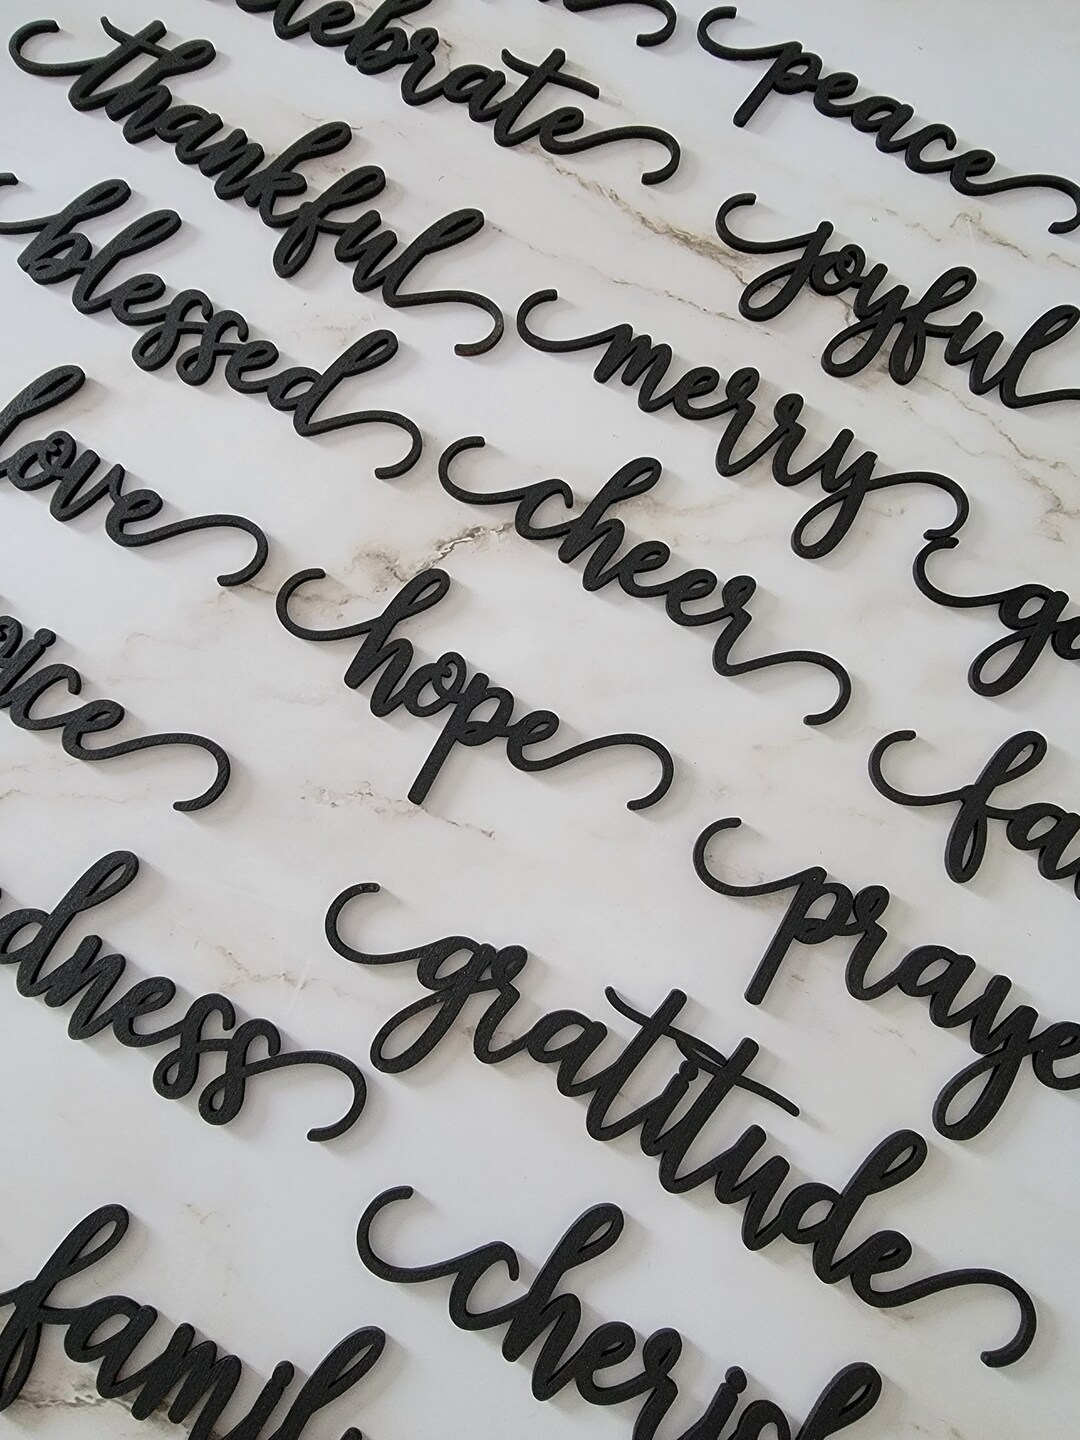 lebrate
peace
thankful
joyful
blessed
merry
love
cheer
go
hope
oice
fa
praye
dness
gratitude
family
cherish